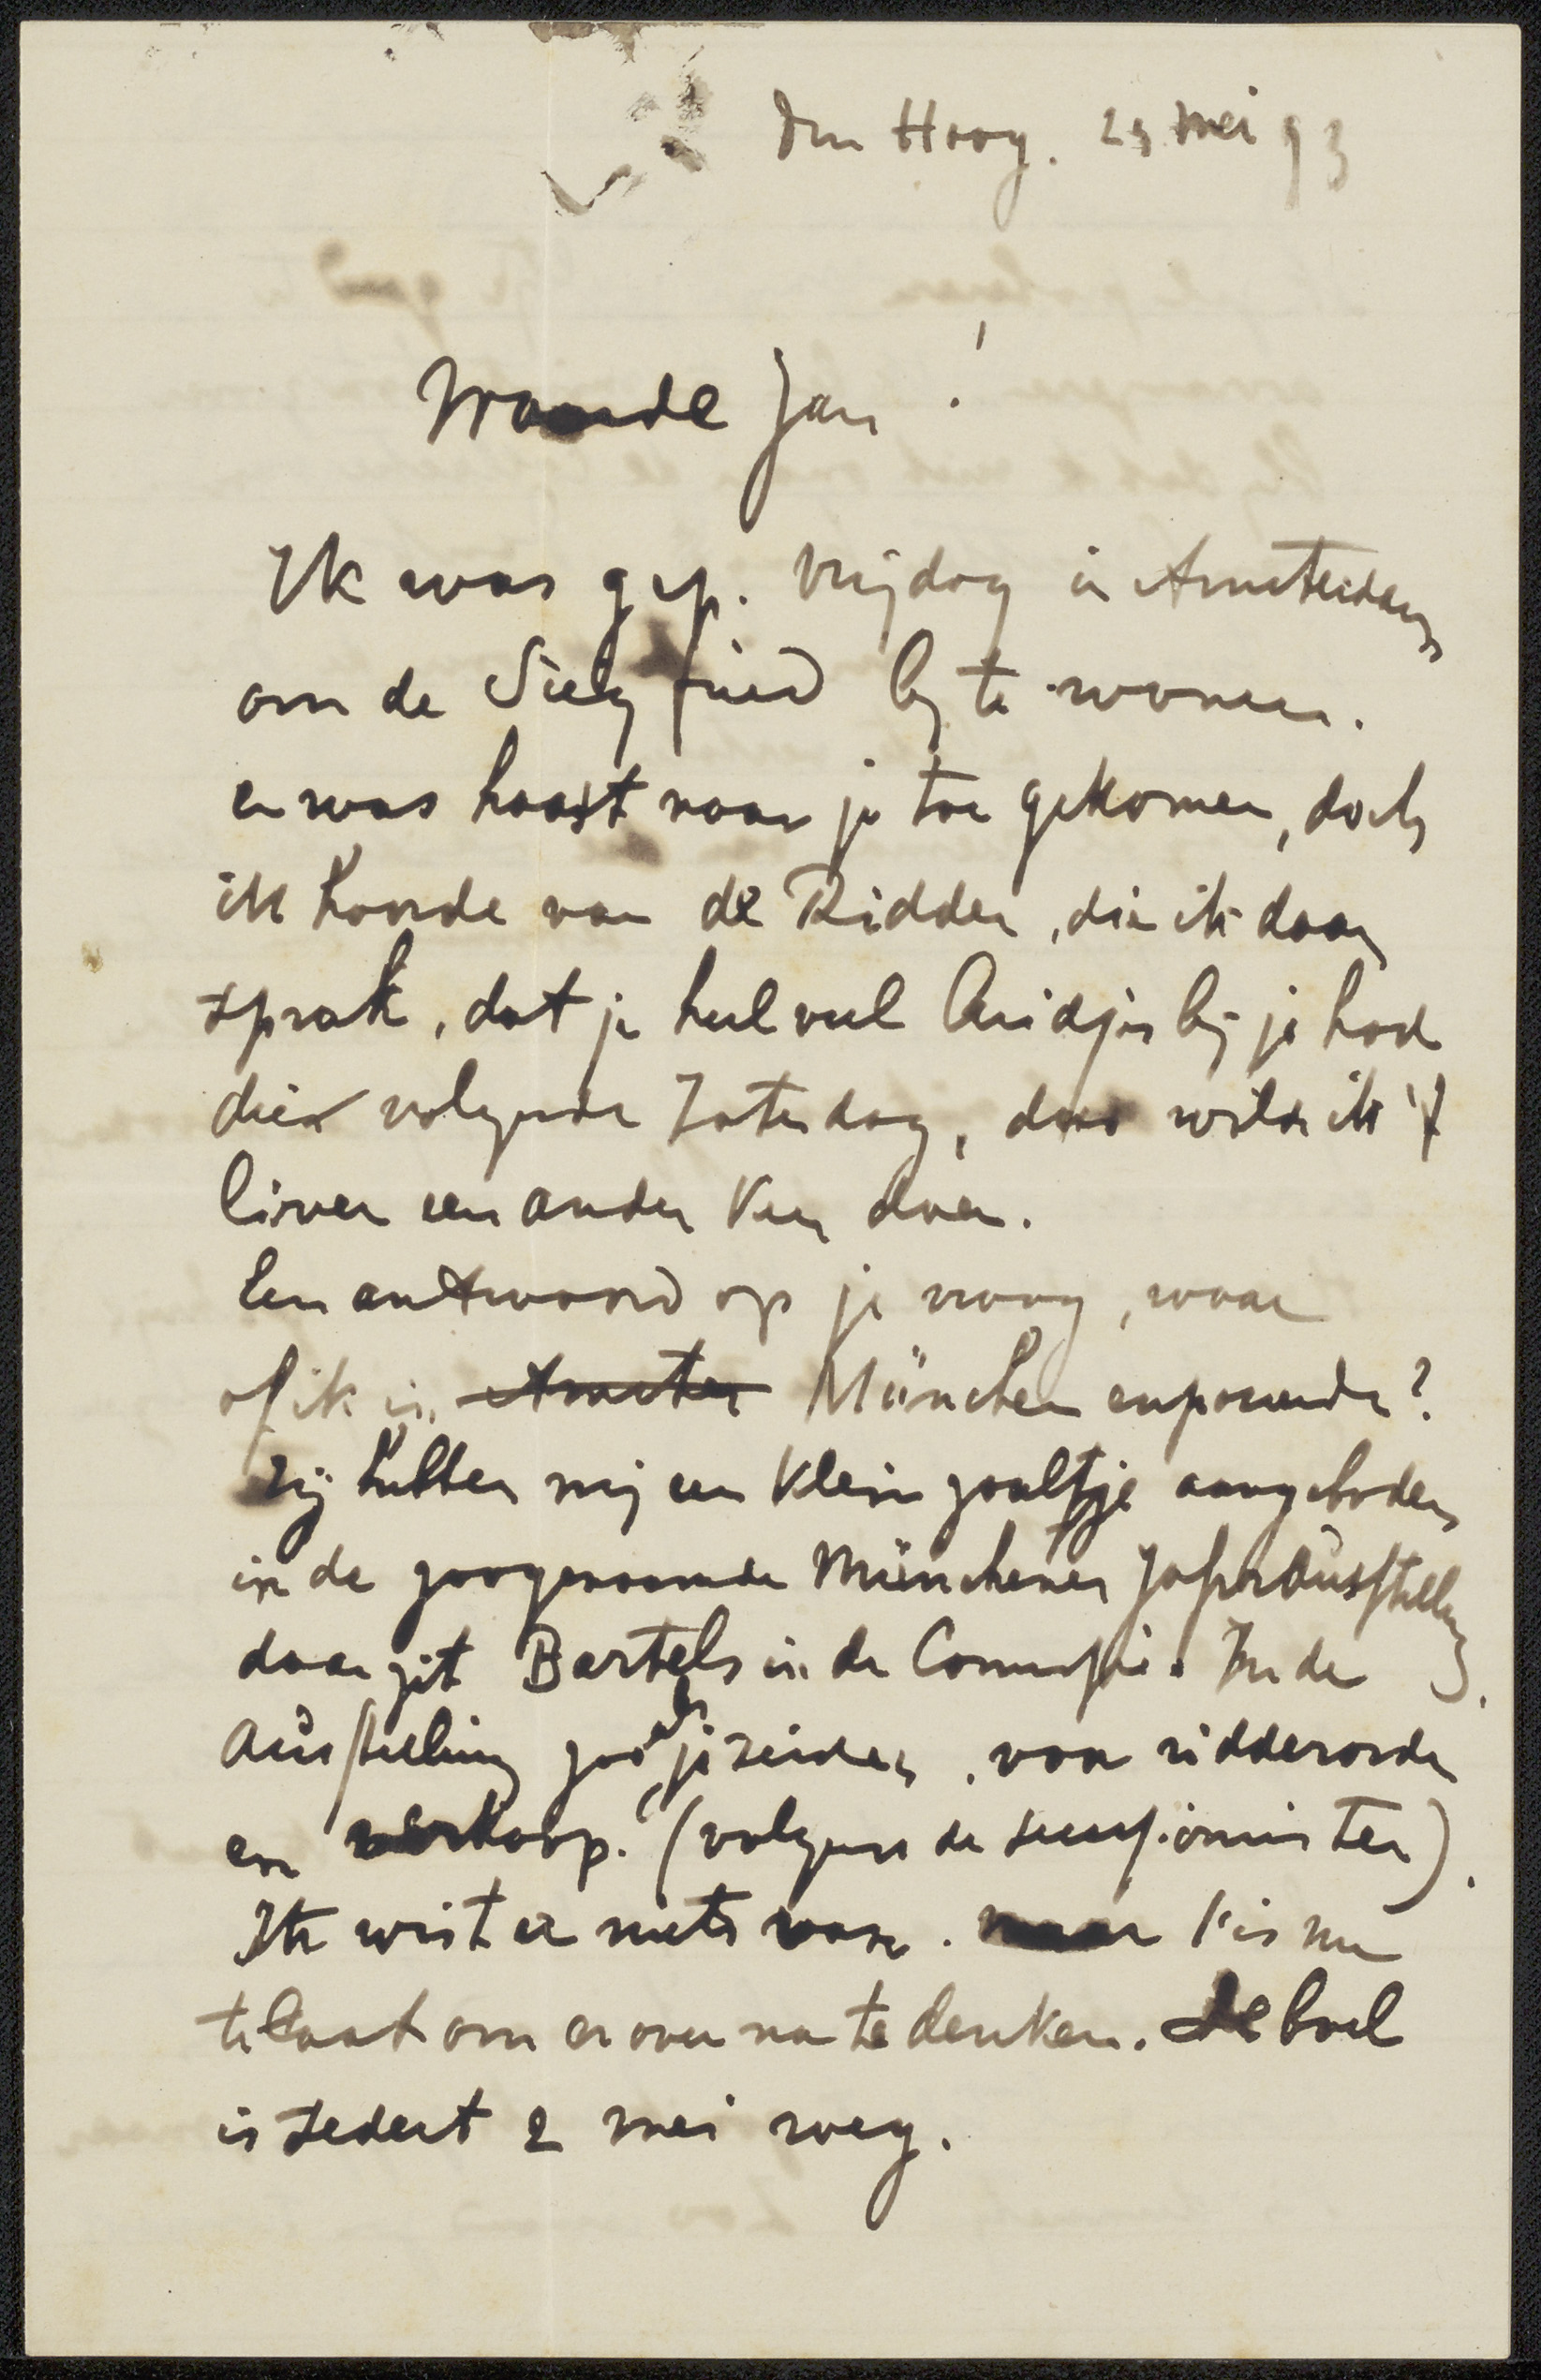 den Haag. 23 mei 93
Waarde Jan!
Ik was gep. vrijdag in Amsterdam
om de Siegfried bij te wonen.
en was haast naar je toe gekomen, doch
ik hoorde van de Ridder, die ik daar
sprak, dat je heel veel bij je had
dien volgende Zaterdag, dus wilde ik 't
liever een ander keer doen.
Een antwoord op je vraag, waar
of ik in Amster München exposeerde?
Zij hebben mij een klein zaaltje aangeboden
in de zoogenaamde Münchener Jahresausstellung
daar zit Bartels in de Commissie. In de
Ausstellung zooals je zeide, voor ridderorde
en verkoop. (volgens de secessionisten).
Ik wist er niets van. maar 't is nu
te laat om er over na te denken. De boel
is sedert 2 mei weg.